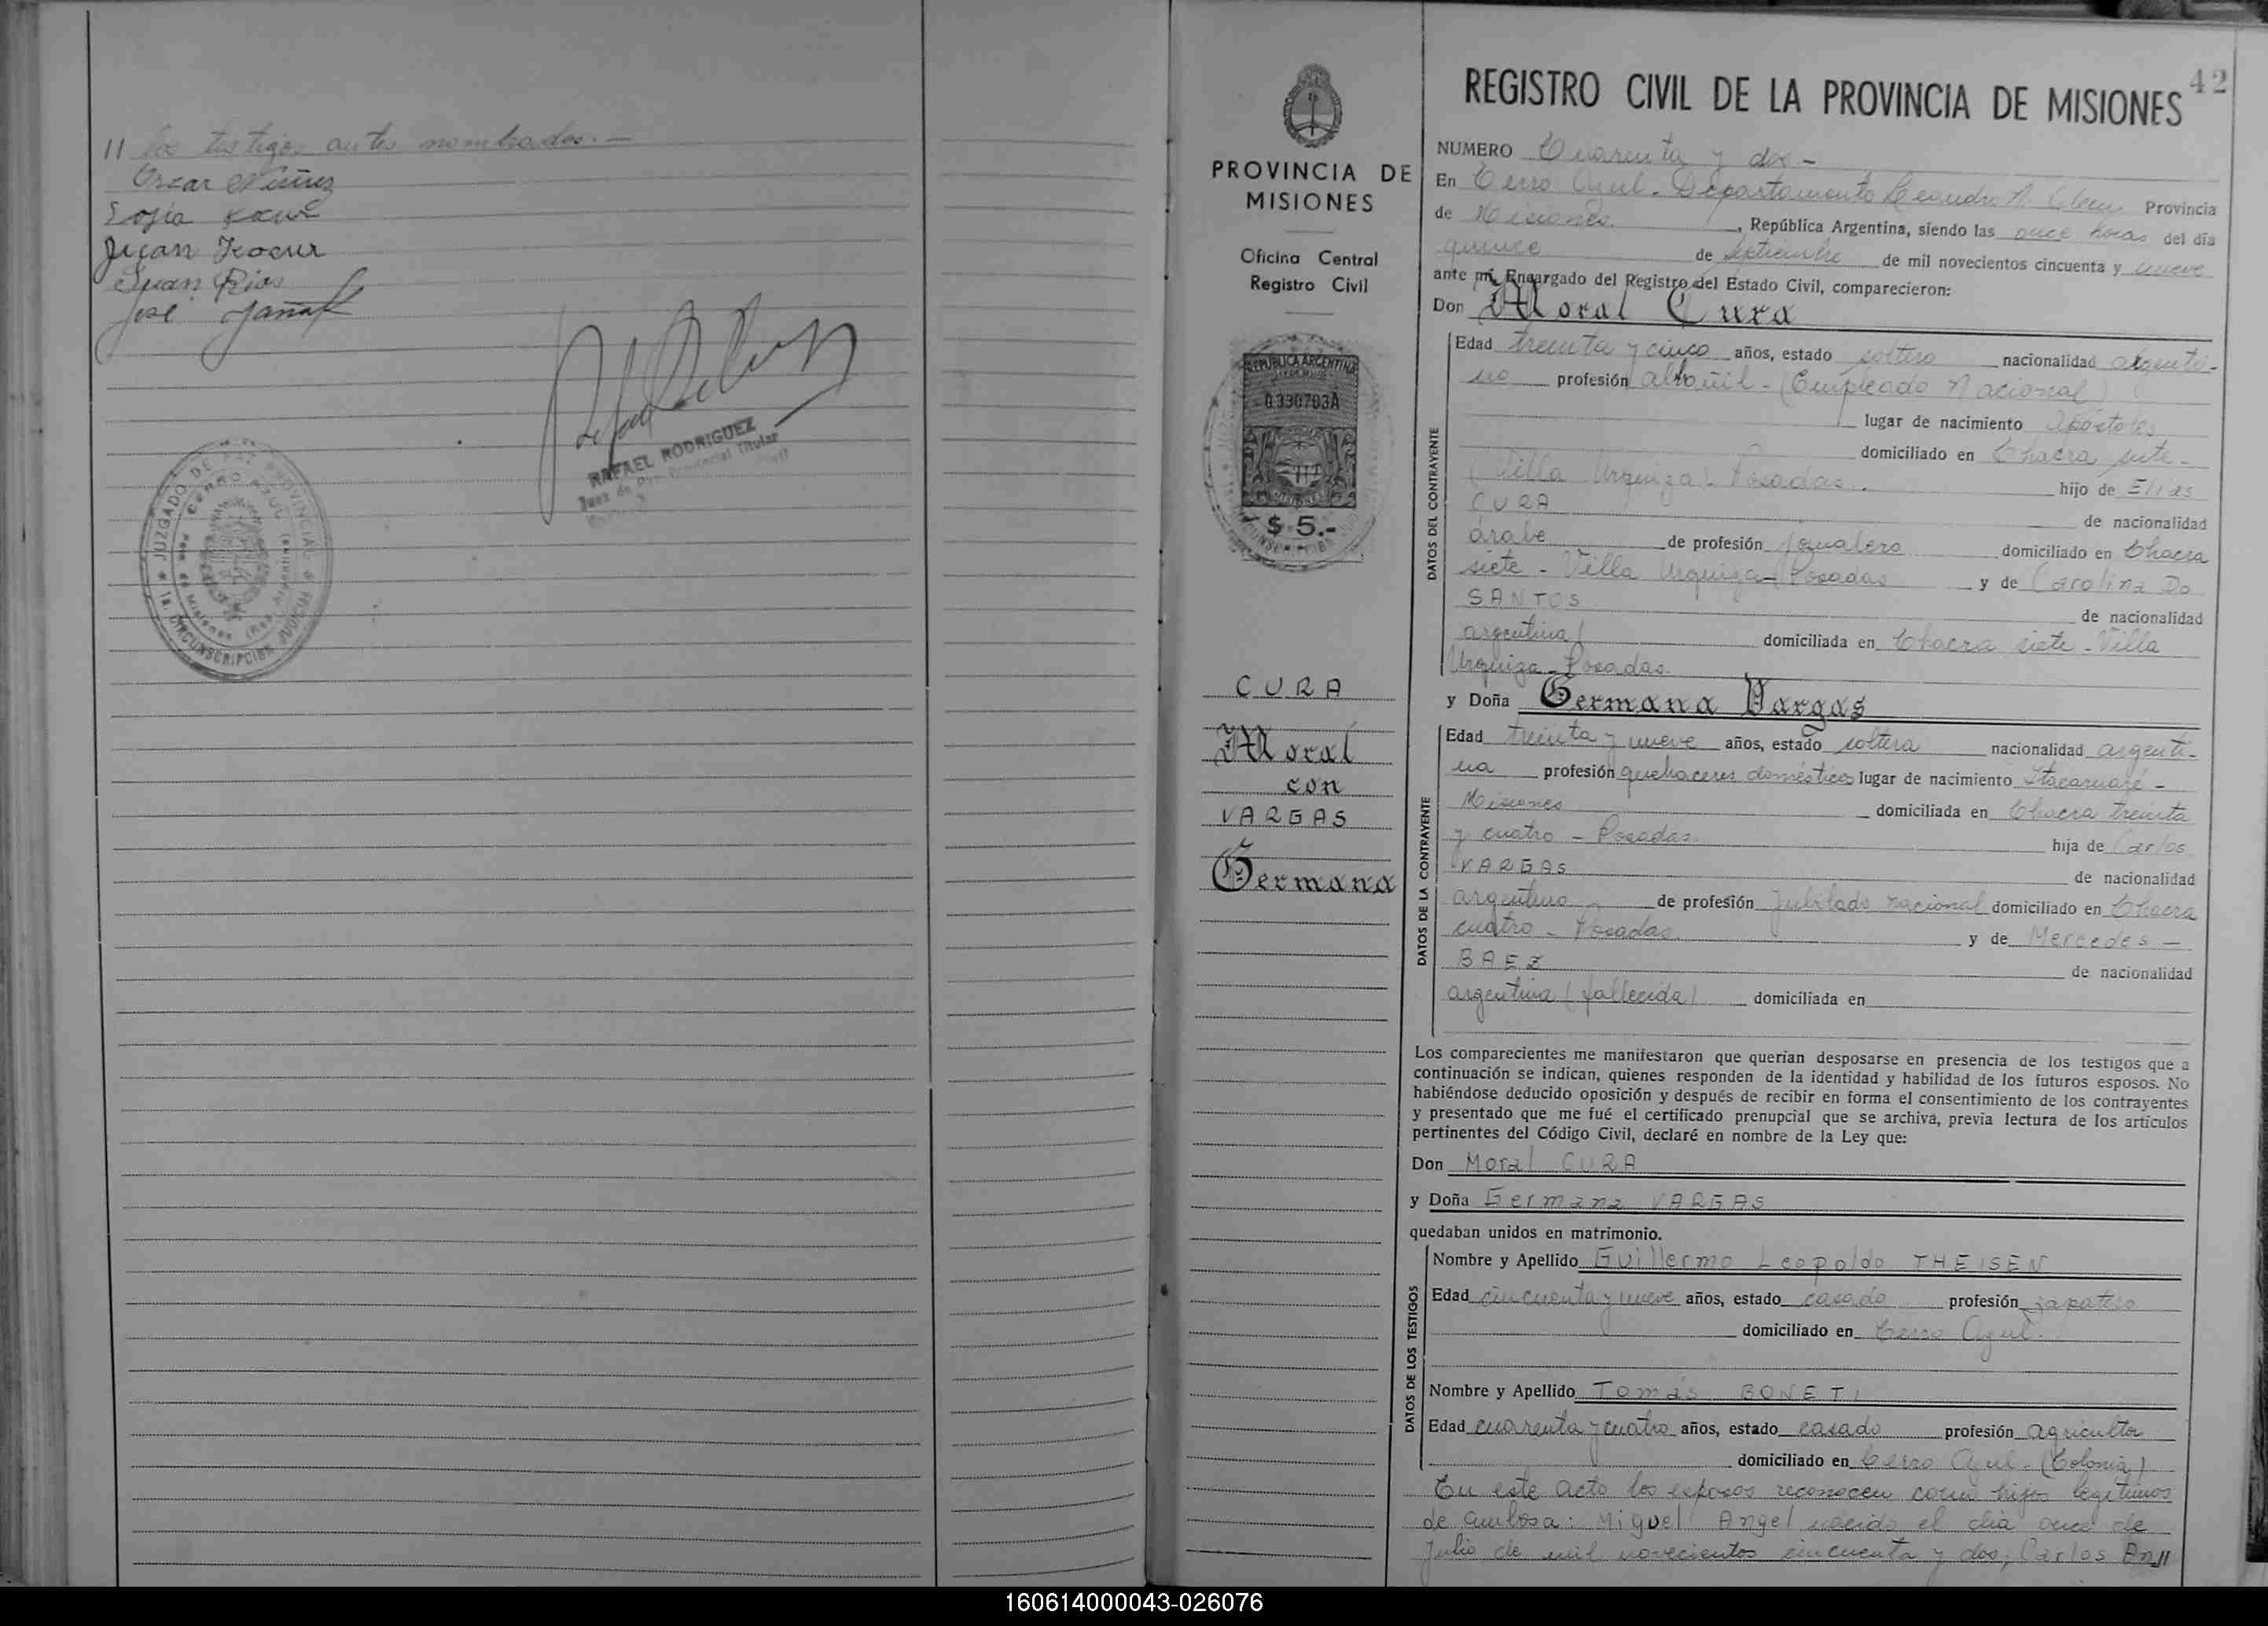 // los testigos antes nombrados. —
Oscar Núñez
Juan Kocur
Juan Rios
José
RAFAEL RODRIGUEZ
Juez de Paz Provincial Titular
JUZGADO DE PAZ PROVINCIAL
CERRO AZUL
Pcia. de Misiones (Rep. Argentina)
1a. CIRCUNSCRIPCION JUDICIAL
42
PROVINCIA DE
MISIONES
Oficina Central
Registro Civil
REPUBLICA ARGENTINA
0330703A
$ 5.-
CURA
Moral
con
VARGAS
Germana
REGISTRO CIVIL DE LA PROVINCIA DE MISIONES
NUMERO Cuarenta y dos -
En Cerro Azul - Departamento Leandro N. Alem Provincia
de Misiones, República Argentina, siendo las once horas del día
quince de septiembre de mil novecientos cincuenta y nueve
ante mí, Encargado del Registro del Estado Civil, comparecieron:
Don Moral Cura
DATOS DEL CONTRAYENTE
Edad treinta y cinco años, estado soltero nacionalidad argenti-
no profesión albañil - (Empleado Nacional)
lugar de nacimiento Apóstoles
domiciliado en Chacra siete -
(Villa Urquiza) - Posadas. hijo de Elias
CURA de nacionalidad
árabe de profesión jornalero domiciliado en Chacra
siete - Villa Urquiza - Posadas y de Carolina Do
SANTOS de nacionalidad
argentina domiciliada en Chacra siete - Villa
Urquiza - Posadas.
y Doña Germana Vargas
DATOS DE LA CONTRAYENTE
Edad treinta y nueve años, estado soltera nacionalidad argenti-
na profesión quehaceres domésticos lugar de nacimiento Itacaruaré -
Misiones domiciliada en Chacra treinta
y cuatro - Posadas. hija de Carlos
VARGAS de nacionalidad
argentino de profesión Jubilado nacional domiciliado en Chacra
cuatro - Posadas y de Mercedes -
BAEZ de nacionalidad
argentina (fallecida) domiciliada en
Los comparecientes me manifestaron que querían desposarse en presencia de los testigos que a
continuación se indican, quienes responden de la identidad y habilidad de los futuros esposos. No
habiéndose deducido oposición y después de recibir en forma el consentimiento de los contrayentes
y presentado que me fué el certificado prenupcial que se archiva, previa lectura de los artículos
pertinentes del Código Civil, declaré en nombre de la Ley que:
Don Moral CURA
y Doña Germana VARGAS
quedaban unidos en matrimonio.
DATOS DE LOS TESTIGOS
Nombre y Apellido Guillermo Leopoldo THEISEN
Edad cincuenta y nueve años, estado casado profesión zapatero
domiciliado en Cerro Azul.
Nombre y Apellido Tomás BONETI
Edad cuarenta y cuatro años, estado casado profesión agricultor
domiciliado en Cerro Azul - (Colonia)
En este acto los esposos reconocen como hijos legítimos
de ambos: Miguel Angel nacido el día once de
Julio de mil novecientos cincuenta y dos; Carlos An//
160614000043-026076